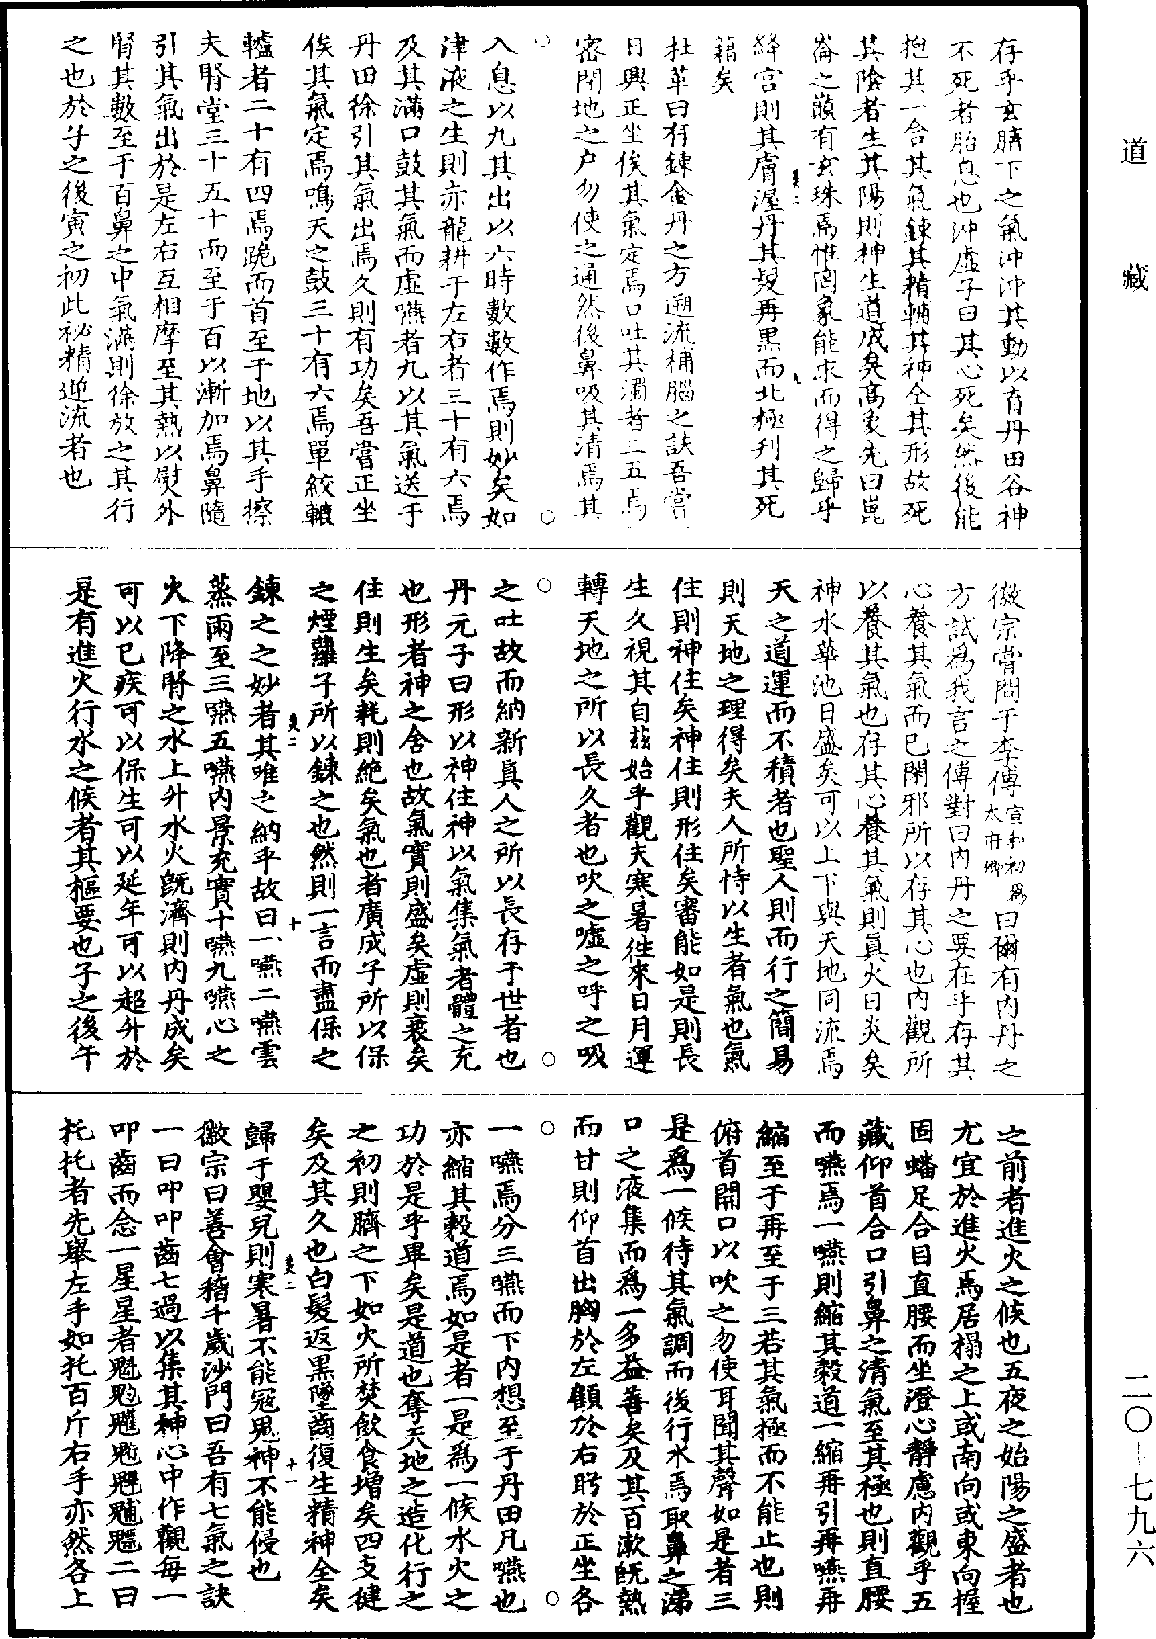 存乎玄臍下之氣沖沖其動以育丹田谷神
不死者胎息也沖虛子曰其心死矣然後能
抱其一合其氣鍊其精輔其神全其形故死
其陰者生其陽則神生道成矣髙象先曰崑
崙之巔有玄珠焉惟罔象能求而得之歸乎
絳宮則其膚渥丹其髮再黒而北極刋其死
籍矣
杜革曰有鍊金丹之方遡流補腦之訣吾嘗
日興正坐俟其氣定焉口吐其濁者二五焉
密閉地之户勿使之通然後鼻吸其清焉其
入息以九其出以六時數數作焉則妙矣如
津液之生則亦龍耕于左右者三十有六焉
及其滿口鼓其氣而虛嚥者九以其氣送于
丹田徐引其氣出焉久則有功矣吾當正坐
俟其氣定焉鳴天之鼓三十有六焉單絞轆
轤者二十有四焉跪而首至于地以其手擦
夫腎堂三十五十而至于百以漸加焉鼻隨
引其氣出於是左右互相摩至其熱以熨外
腎其數至于百鼻之中氣滿則徐放之其行
之也於子之後寅之初此祕精遡流者也
徽宗嘗問于李傳宣和初爲太府卿曰爾有内丹之
方試爲我言之傳對曰内丹之要在乎存其
心養其氣而已閑邪所以存其心也内觀所
以養其氣也存其心養其氣則真火日炎矣
神水華池日盛矣可以上下與天地同流焉
天之道運而不積者也聖人則而行之簡易
則天地之理得矣夫人所恃以生者氣也氣
住則神住矣神住則形住矣審能如是則長
生久視其自兹始乎觀夫寒暑徃來日月運
轉天地之所以長久者也吹之噓之呼之吸
之吐故而納新真人之所以長存于世者也
丹元子曰形以神住神以氣集氣者體之充
也形者神之舍也故氣實則盛矣虛則衰矣
住則生矣耗則絶矣氣也者廣成子所以保
之煙蘿子所以鍊之也然則一言而盡保之
鍊之之妙者其唯之納乎故曰一嚥二嚥雲
蒸雨至三嚥五嚥内景充實十嚥九嚥心之
火下降腎之水上升水火既濟則内丹成矣
可以已疾可以保生可以延年可以超升於
是有進火行水之候者其樞要也子之後午
之前者進火之候也五夜之始陽之盛者也
尤宜於進火焉居榻之上或南向或東向握
固蟠足合目直腰而坐澄心靜慮内觀乎五
藏仰首合口引鼻之清氣至其極也則直腰
而嚥焉一嚥則縮其穀道一縮再引再嚥再
縮至于再至于三若其氣極而不能止也則
俯首開口以吹之勿使耳聞其聲如是者三
是爲一候待其氣調而後行水焉取鼻之涕
口之液集而爲一多益善矣及其百漱既熱
而甘則仰首出胷於左顧於右盻於正坐各
一嚥焉分三嚥而下内想至于丹田凡嚥也
亦縮其穀道焉如是者一是爲一候水火之
功於是乎畢矣是道也奪天地之造化行之
之初則臍之下如火所焚飲食增矣四支健
矣及其久也白髮返黒墜齒復生精神全矣
歸于嬰兒則寒暑不能冦鬼神不能侵也
徽宗曰善會稽千歲沙門曰吾有七氣之訣
一曰叩叩齒七過以集其神心中作觀每一
叩齒而念一星星者魁䰢䰡魓䰣䰤䰥二曰
托托者先舉左手如托百斤右手亦然各上
道藏
二〇—七九六